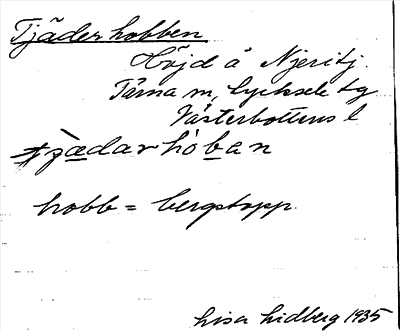 Tjäderhobben
Höjd å Njeritj.
Tärna sn, Lycksele tg
Västerbottens l
hobb = bergstopp.
Lisa Lidberg 1935